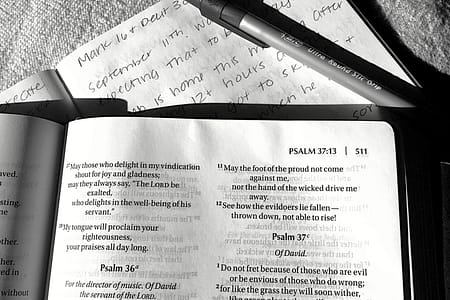 Mark 16 + Deut 3
September 11th. W
expecting that to b
is home this m
12+ hours
got to sk
when he
Ultra Round Stic Grip
PSALM 37:13 | 511
27May those who delight in my vindication
shout for joy and gladness;
may they always say, “The LORD be
exalted,
who delights in the well-being of his
servant.”
28My tongue will proclaim your
righteousness,
your praises all day long.
Psalm 36
For the director of music. Of David
the servant of the LORD.
11May the foot of the proud not come
against me,
nor the hand of the wicked drive me
away.
12See how the evildoers lie fallen—
thrown down, not able to rise!
Psalm 37
Of David.
1Do not fret because of those who are evil
or be envious of those who do wrong;
2for like the grass they will soon wither,